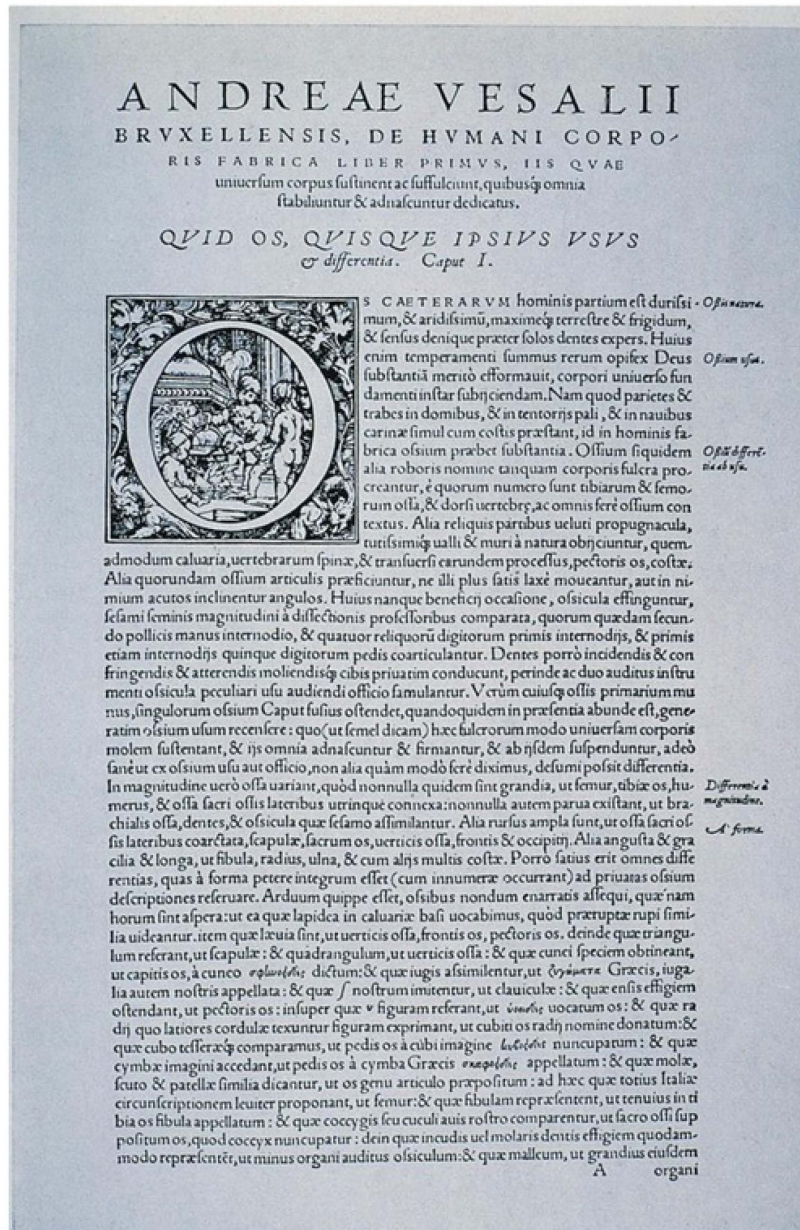 ANDREAE VESALII
BRVXELLENSIS, DE HVMANI CORPO-
RIS FABRICA LIBER PRIMVS, IIS QVAE
uniuersum corpus sustinent ac suffulciunt, quibusq́ omnia
stabiliuntur & adnascuntur dedicatus.
QVID OS, QVISQVE IPSIVS VSVS
& differentia. Caput I.
OS CAETERARVM hominis partium est durissi-
Ossis natura.
mum, & aridissimū, maximeq́ terrestre & frigidum,
& sensus denique præter solos dentes expers. Huius
enim temperamenti summus rerum opifex Deus
Ossium usus.
substantiā meritò efformauit, corpori uniuerso fun
damenti instar subijciendam. Nam quod parietes &
trabes in domibus, & in tentorijs pali, & in nauibus
carinæ simul cum costis præstant, id in hominis fa-
brica ossium præbet substantia. Ossium siquidem
Ossiū differē-
tia ab usu.
alia roboris nomine tanquam corporis fulcra pro-
creantur, è quorum numero sunt tibiarum & femo-
rum ossa, & dorsi uertebrę, ac omnis ferè ossium con
textus. Alia reliquis partibus ueluti propugnacula,
tutissimiq́ ualli & muri à natura obijciuntur, quem-
admodum caluaria, uertebrarum spinæ, & transuersi earundem processus, pectoris os, costæ.
Alia quorundam ossium articulis præficiuntur, ne illi plus satis laxè moueantur, aut in ni-
mium acutos inclinentur angulos. Huius nanque beneficij occasione, ossicula effinguntur,
sesami seminis magnitudini à dissectionis professoribus comparata, quorum quædam secun-
do pollicis manus internodio, & quatuor reliquorū digitorum primis internodijs, & primis
etiam internodijs quinque digitorum pedis coarticulantur. Dentes porrò incidendis & con
fringendis & atterendis moliendisq́ cibis priuatim conducunt, perinde ac duo auditus instru
menti ossicula peculiari usu audiendi officio famulantur. Verùm cuiusq́ ossis primarium mu
nus, singulorum ossium Caput fusius ostendet, quandoquidem in præsentia abunde est, gene-
ratim ossium usum recensere: quo (ut semel dicam) hæc fulcrorum modo uniuersam corporis
molem sustentant, & ijs omnia adnascuntur & firmantur, & ab ijsdem suspenduntur, adeò
sanè ut ex ossium usu aut officio, non alia quàm modò ferè diximus, desumi possit differentia.
In magnitudine uerò ossa uariant, quòd nonnulla quidem sint grandia, ut femur, tibiæ os, hu-
Differentia à
magnitudine.
merus, & ossa sacri ossis lateribus utrinque connexa: nonnulla autem parua existant, ut bra-
chialis ossa, dentes, & ossicula quæ sesamo assimilantur. Alia rursus ampla sunt, ut ossa sacri os-
A' forma.
sis lateribus coarctata, scapulæ, sacrum os, uerticis ossa, frontis & occipitij. Alia angusta & gra
cilia & longa, ut fibula, radius, ulna, & cum alijs multis costæ. Porrò satius erit omnes diffe
rentias, quas à forma petere integrum esset (cum innumeræ occurrant) ad priuatas ossium
descriptiones reseruare. Arduum quippe esset, ossibus nondum enarratis assequi, quæ nam
horum sint aspera: ut ea quæ lapidea in caluariæ basi uocabimus, quòd præruptæ rupi simi-
lia uideantur. item quæ læuia sint, ut uerticis ossa, frontis os, pectoris os. deinde quæ triangu-
lum referant, ut scapulæ: & quadrangulum, ut uerticis ossa: & quæ cunei speciem obtineant,
ut capitis os, à cuneo σφηνοειδὲς dictum: & quæ iugis assimilentur, ut ζυγώματα Græcis, iuga-
lia autem nostris appellata: & quæ ſ nostrum imitentur, ut clauiculæ: & quæ ensis effigiem
ostendant, ut pectoris os: insuper quæ υ figuram referant, ut ὑοειδὲς uocatum os: & quæ ra
dij quo latiores cordulæ texuntur figuram exprimant, ut cubiti os radij nomine donatum: &
quæ cubo tesseræq́ comparamus, ut pedis os à cubi imagine κυβοειδὲς nuncupatum: & quæ
cymbæ imagini accedant, ut pedis os à cymba Græcis σκαφοειδὲς appellatum: & quæ molæ,
scuto & patellæ similia dicantur, ut os genu articulo præpositum: ad hæc quæ totius Italiæ
circunscriptionem leuiter proponant, ut femur: & quæ fibulam repræsentent, ut tenuius in ti
bia os fibula appellatum: & quæ coccygis seu cuculi auis rostro comparentur, ut sacro ossi sup
positum os, quod coccyx nuncupatur: dein quæ incudis uel molaris dentis effigiem quodam-
modo repræsentēt, ut minus organi auditus ossiculum: & quæ malleum, ut grandius eiusdem
A organi